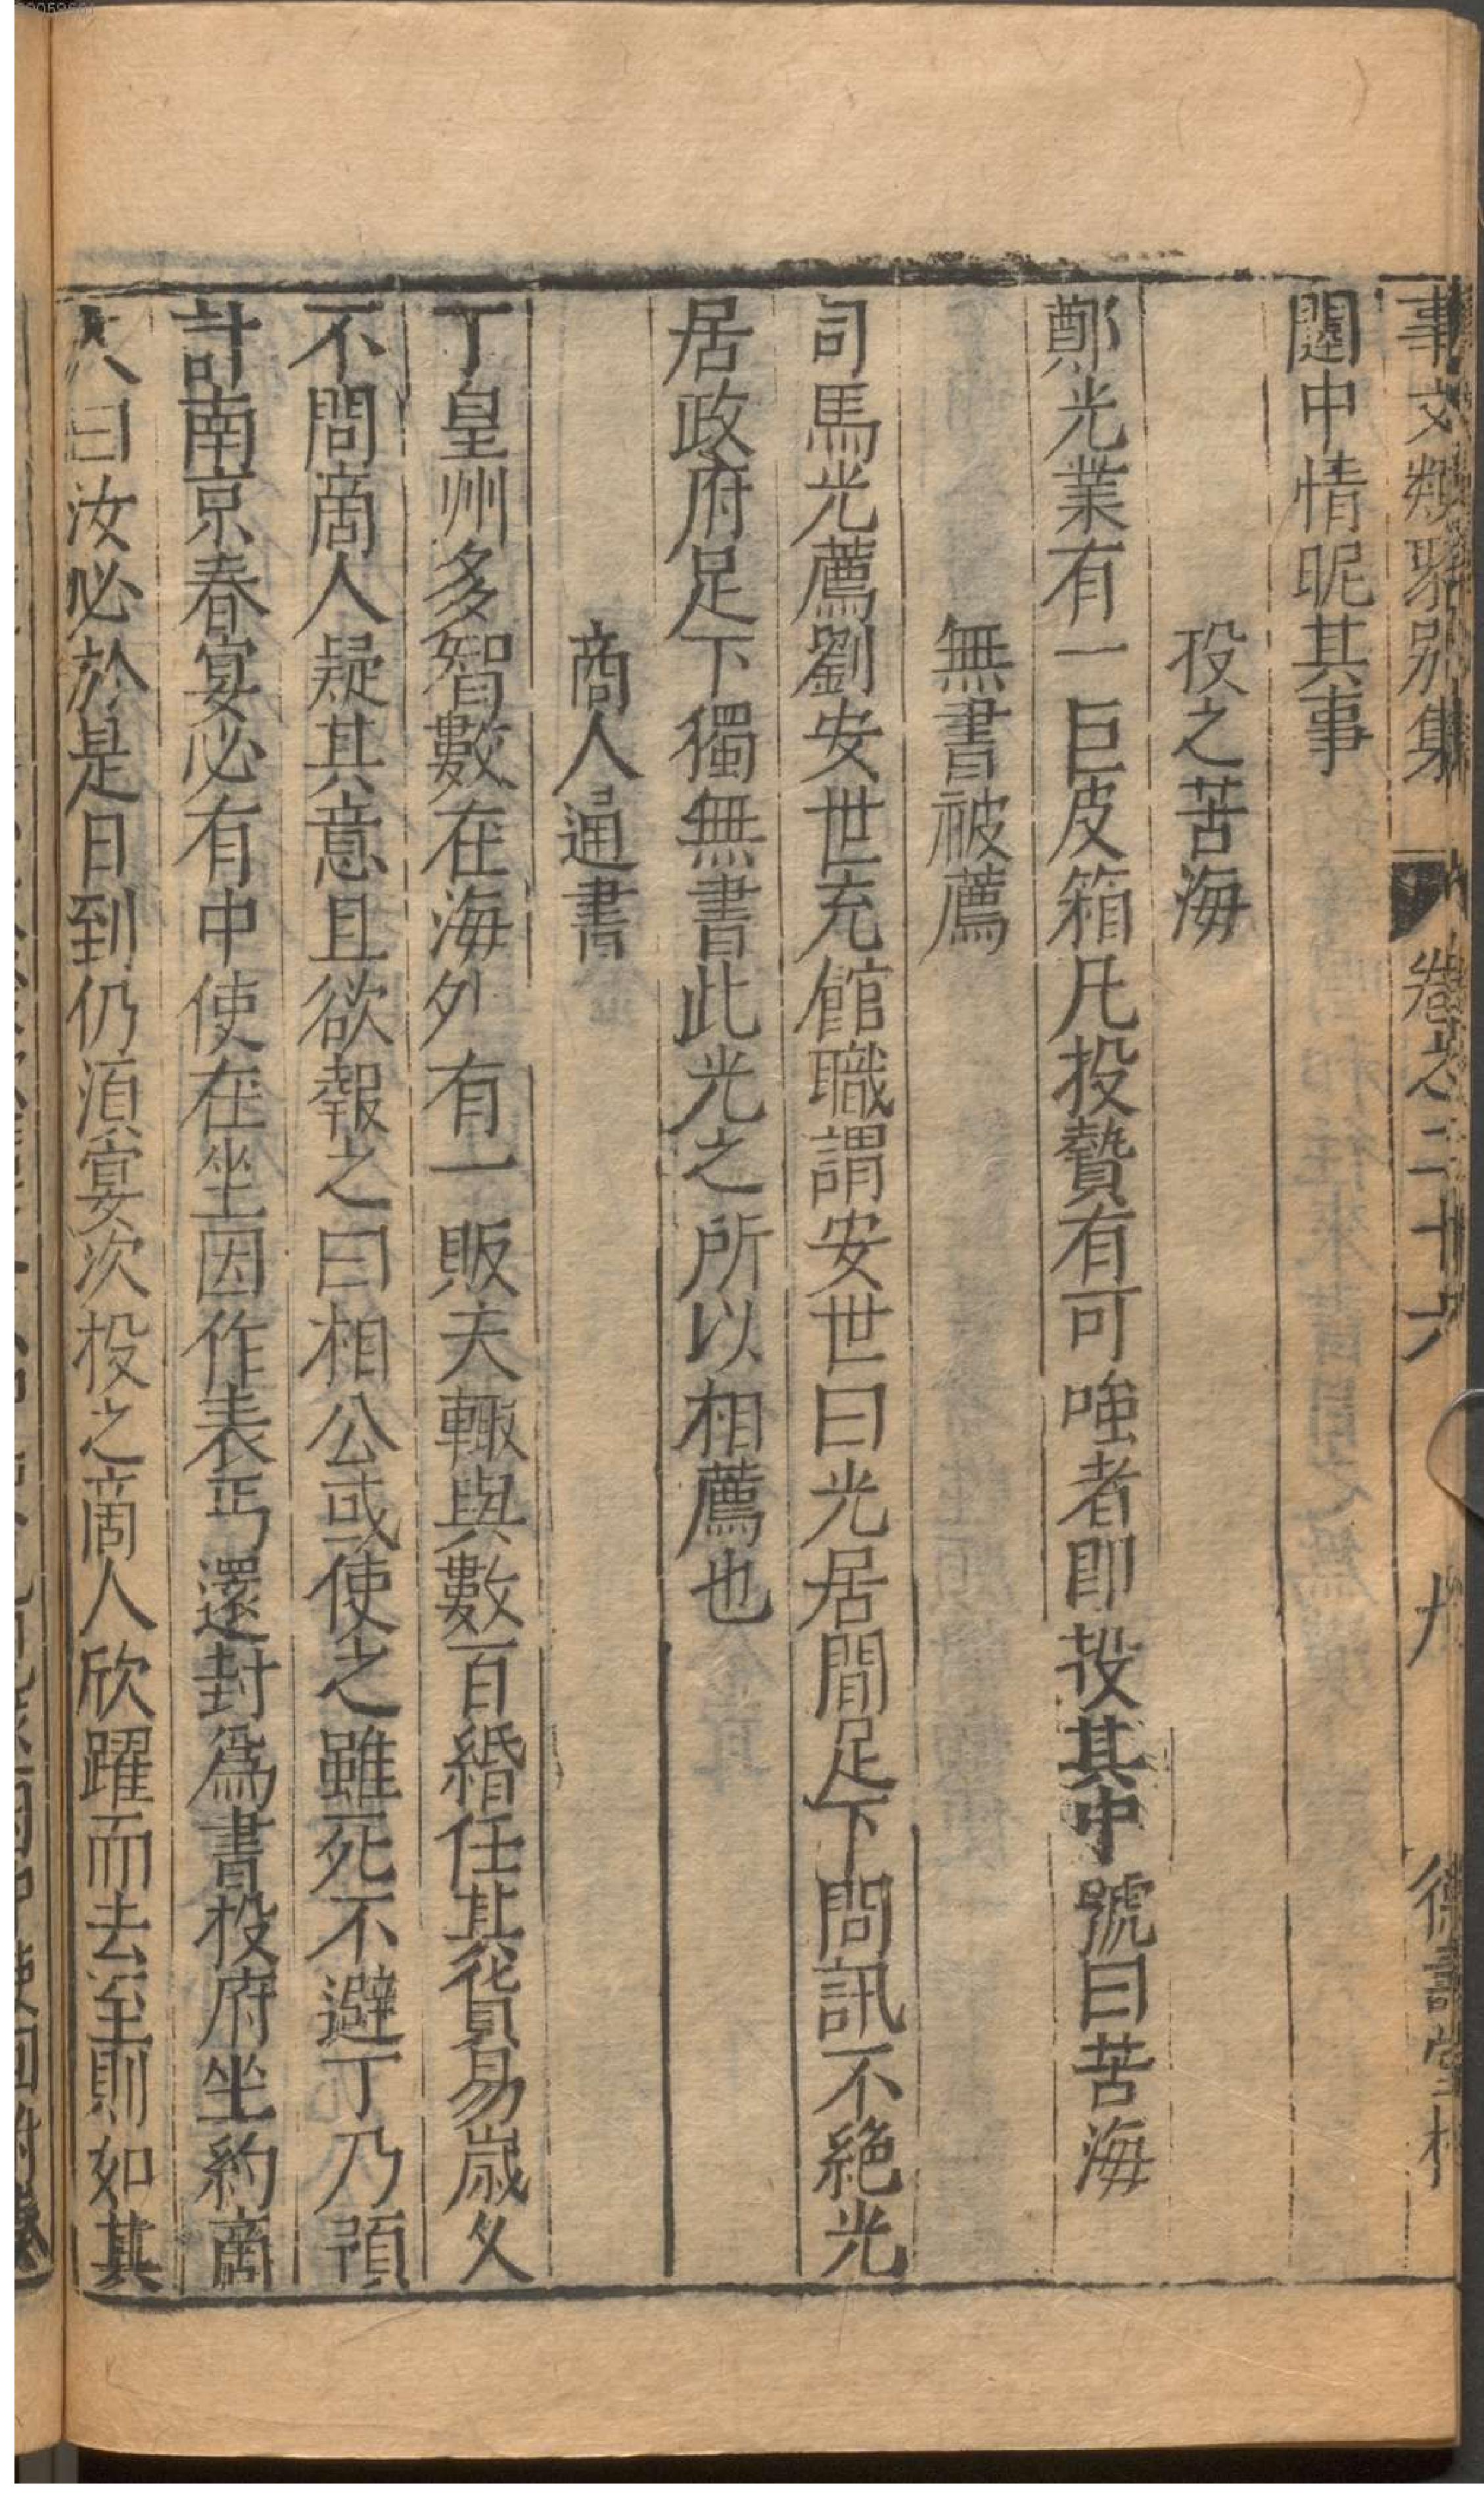 事文類聚别集 卷之二十六 九 德壽堂梓
闥中情昵其事
投之苦海
鄭光業有一巨皮箱凡投贄有可嗤者即投其中號曰苦海
無書被薦
司馬光薦劉安世充館職謂安世曰光居間足下問訊不絶光
居政府足下獨無書此光之所以相薦也
商人通書
丁皇州多智數在海外有一販夫輙與數百緡任其貨易嵗久
不問商人疑其意且欲報之曰相公或使之雖死不避丁乃預
計南京春宴必有中使在坐因作表丐還封爲書投府坐約商
人曰汝必於是日到仍須宴次投之商人欣躍而去至則如其